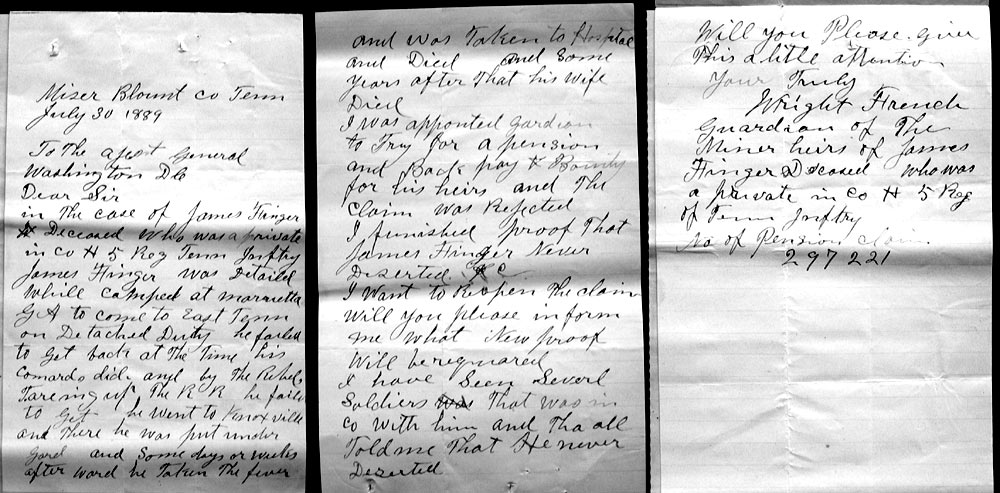 Mizer Blount co Tenn
July 30 1889
To the ajest General
Washington DC
Dear Sir
in The case of James Finger
Deceased who was a private
in co H 5 Reg Tenn Infttry
James Finger was Detailed
While camped at marrietta
GA to come to East Tenn
on Detached Duty he failed
to get back at The time his
Comards did and by The Rebels
Tareing up The R R he faild
to get he went to Knoxville
and There he was put under
gard and Some days or weeks
after ward he Taken The fever
and was Taken to Hospital
and Died and Some
years after That his wife
Died
I was apponted gardian
to Try for a pension
and Back pay & Bounty
for his heirs and The
Claim was Rejected
I furnished proof That
James Finger Never
Deserted & C
I Want to Reopen The claim
Will you please inform
me what New proof
Will be reguared
I have Seen Severl
Soldiers was That was in
Co with him and Tha all
Told me That He never
Dezerted
Will you Please give
This a little attention
Your Truly
Wright French
Guardian of The
Miner heirs of James
Finger Deceased who was
a private in co H 5 Reg
of Tenn Infttry
No of Pension claim
297221